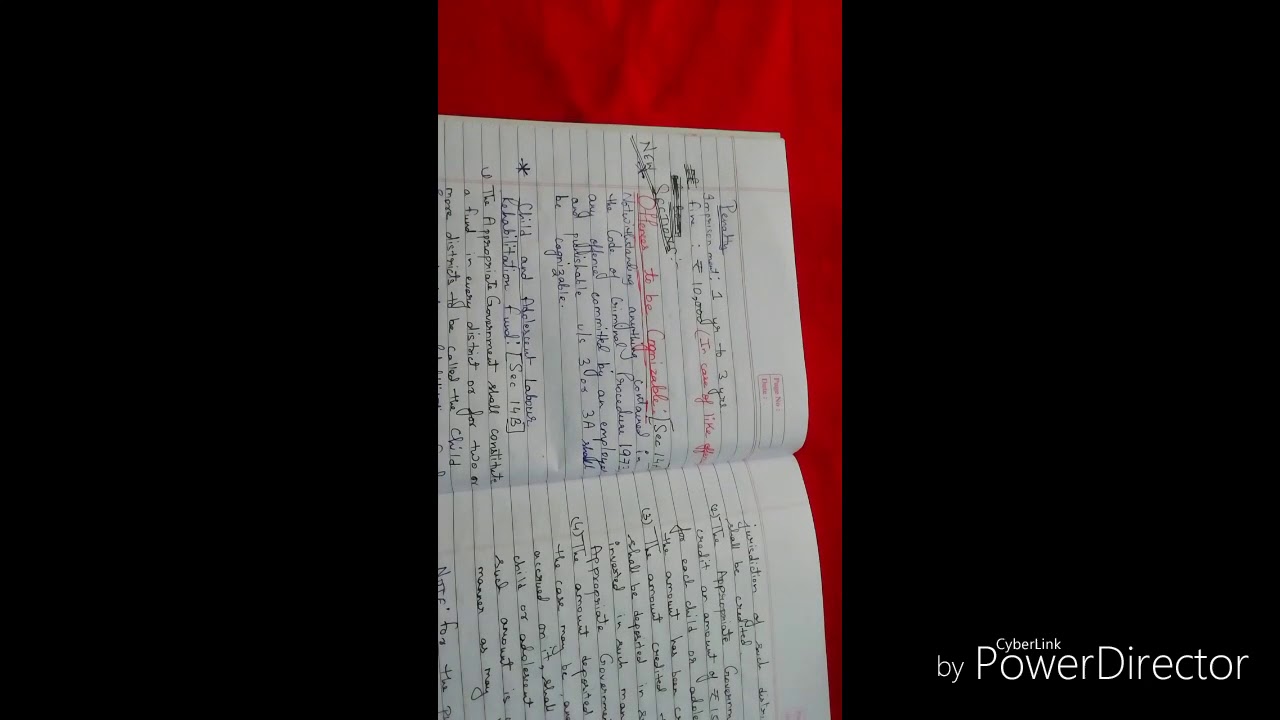 Page No :
Date :
Penalty
Imprisonment: 1 yr to 3 yrs
fine : ₹ 10,000 (In case of like
NEW Sections :-
* Offences to be Cognizable: [Sec 14
Notwithstanding anything contained in
the Code of Criminal Procedure 197
any offence committed by an employe
and publishable u/s 3 or 3A shall
be cognizable.
* Child and Adolescent Labour
Rehabilitation Fund: [Sec 14B]
1) The Appropriate Government shall constitute
a fund in every district or for two or
more districts to be called the Child
jurisdiction of such distri
shall be credited
(2) The Appropriate Governm
credit an amount of ₹ 15
for each child or adole
the amount has been cr
(3) The amount credited
shall be deposited in s
invested in such man
Appropriate Governme
(4) The amount deposited
the case may be, an
accrued on it, shall
child or adolescent
such amount is
manner as may
NOTE: for the
CyberLink
by PowerDirector